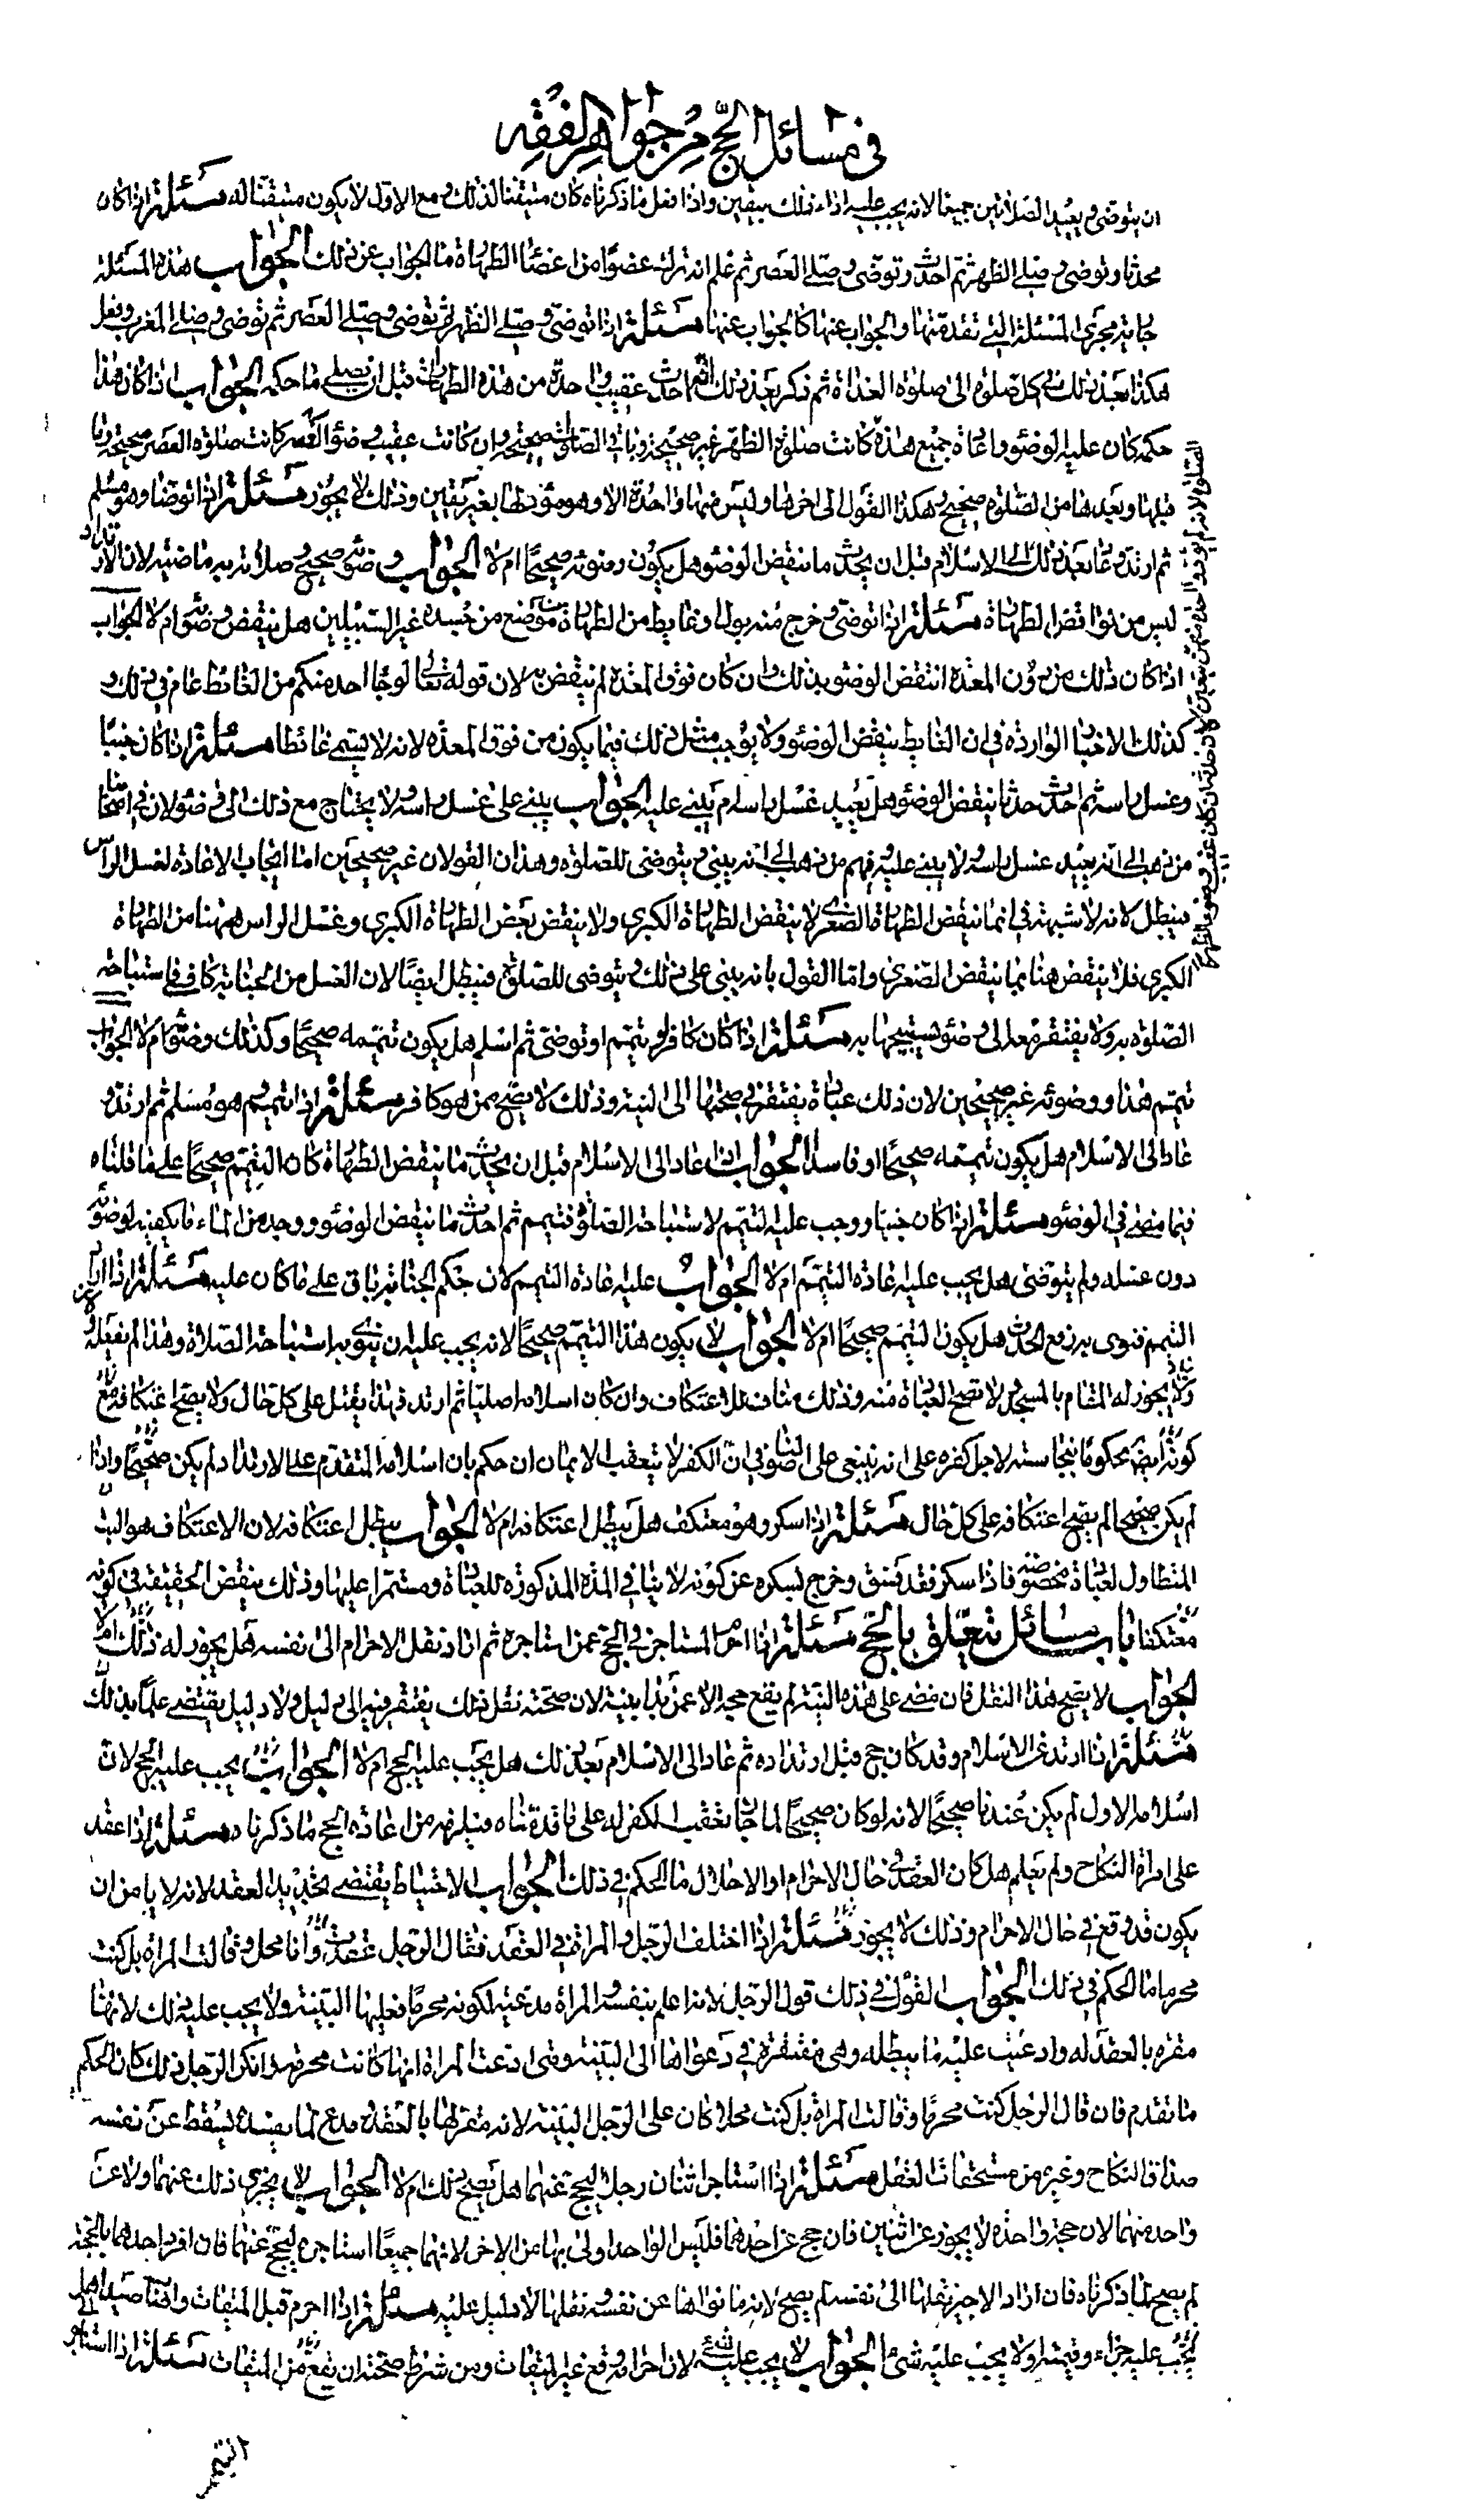 في مسائل الحج من جواهر الفقه
ان يتوضى ويعيد الصلاتين جميعا لانه يجب عليه اداء ذلك بيقين واذا فعل ما ذكرناه كان متيقنا لذلك ومع الاول لا يكون متيقنا له مسئلة اذا كان
محدثا وتوضى وصلى الظهر ثم احدث وتوضى وصلى العصر ثم علم انه ترك عضوا من اعضاء الطهارة ما الجواب عن ذلك الجواب هذه المسئلة
جارية مجرى المسئلة التي تقدمتها والجواب عنها كالجواب عنها مسئلة اذا توضى وصلى الظهر ثم توضى وصلى العصر ثم توضى وصلى المغرب وفعل
هكذا بعد ذلك في كل صلوة الى صلوة الغداة ثم ذكر بعد ذلك انه احدث عقيب واحدة من هذه الطهارات قبل ان يصلى ما حكمه الجواب اذا كان هذا
حكمه كان عليه الوضوء واعادة جميع هذه كانت صلوة الظهر غير صحيحة وباقي الصلوات صحيحة وان كانت عقيب وضوء العصر كانت صلوة العصر صحيحة وما
قبلها وبعدها من الصلوة صحيح وهكذا القول الى اخرها وليس منها واحدة الا وهو مؤد لها بغير يقين وذلك لا يجوز مسئلة اذا توضأ وهو مسلم
ثم ارتد وعاد بعد ذلك الى الاسلام قبل ان يحدث ما ينقض الوضوء هل يكون وضوئه صحيحا ام لا الجواب وضوئه صحيح وصلاته به ماضية لان الارتداد
ليس من نواقض الطهارة مسئلة اذا توضى وخرج منه بول او غايط من الطهارة من موضع من جسده غير السبيلين هل ينتقض وضوئه ام لا الجواب
اذا كان ذلك من دون المعدة انتقض الوضوء بذلك وان كان فوق المعدة لم ينتقض به لان قوله تعالى او جاء احد منكم من الغائط عام في ذلك و
كذلك الاخبار الواردة في ان الغايط ينقض الوضوء ولا يوجب مثل ذلك فيما يكون من فوق المعدة لانه لا يسمى غائطا مسئلة اذا كان جنبا
وغسل راسه ثم احدث حدثا ينقض الوضوء هل يعيد غسل راسه ام يبنى عليه الجواب يبنى على غسل راسه ولا يحتاج مع ذلك الى وضوء لان في اصحابنا
من ذهب الى انه يعيد غسل راسه ولا يبنى عليه ومنهم من ذهب الى انه يبنى ويتوضى للصلوة وهذان القولان غير صحيحين اما ايجاب الاعادة لغسل الراس
فيبطل لانه لا شبهة في انما ينقض الطهارة الصغرى لا ينقض الطهارة الكبرى ولا ينقض بعض الطهارة الكبرى وغسل الراس ههنا من الطهارة
الكبرى فلا ينتقض هنا بما ينقض الصغرى واما القول بانه يبنى على ذلك ويتوضى للصلوة فيبطل ايضا لان الغسل من الجنابة كاف في استباحة
الصلوة به ولا يفتقر معه الى وضوء يستبيحها به مسئلة اذا كان كافرا وتيمم او توضى ثم اسلم هل يكون تيممه صحيحا وكذلك وضوئه ام لا الجواب
تيمم هذا ووضوئه غير صحيحين لان ذلك عبادة يفتقر في صحتها الى النية وذلك لا يصح ممن هو كافر مسئلة اذا تيمم وهو مسلم ثم ارتد و
عاد الى الاسلام هل يكون تيممه صحيحا او فاسدا الجواب اذا عاد الى الاسلام قبل ان يحدث ما ينقض الطهارة كان التيمم صحيحا على ما قلناه
فيما مضى في الوضوء مسئلة اذا كان جنبا ووجب عليه التيمم لاستباحة الصلوة فتيمم ثم احدث ما ينقض الوضوء ووجد من الماء ما يكفيه لوضوئه
دون غسله ولم يتوضى هل يجب عليه اعادة التيمم ام لا الجواب عليه اعادة التيمم لان حكم الجنابة باق على ما كان عليه مسئلة اذا اراد
التيمم فنوى به رفع الحدث هل يكون التيمم صحيحا ام لا الجواب لا يكون هذا التيمم صحيحا لانه يجب عليه ان ينوى به استباحة الصلاة وهذا لم يفعله
ولا يجوز له المقام بالمسجد ولا تصح العبادة منه وذلك مناف للاعتكاف وان كان اسلامه اصليا ثم ارتد فهذا يقتل على كل حال ولا يصح اعتكافه مع
كونه ايضا محكوما بنجاسته لاجل كفره على انه ينبغى على اصولنا في ان الكفر لا يتعقب الايمان ان حكم بان اسلامه المتقدم على الارتداد لم يكن صحيحا واذا
لم يكن صحيحا لم يصح اعتكافه على كل حال مسئلة اذا سكر وهو معتكف هل يبطل اعتكافه ام لا الجواب يبطل اعتكافه لان الاعتكاف هو اللبث
المتطاول لعبادة مخصوصة فاذا سكر فقد فسق وخرج بسكره عن كونه لابثا في المدة المذكورة للعبادة ومستمرا عليها وذلك ينقض الحقيقة في كونه
معتكفا باب مسائل تتعلق بالحج مسئلة اذا احرم المستاجر في الحج عمن استاجره ثم اراد نقل الاحرام الى نفسه هل يجوز له ذلك ام لا
الجواب لا يصح هذا النقل فان مضى على هذه النية لم يقع حجه الا عمن بدأ بنيته لان صحة نقل ذلك يفتقر فيه الى دليل ولا دليل يقتضى علما بذلك
مسئلة اذا ارتد عن الاسلام وقد كان حج قبل ارتداده ثم عاد الى الاسلام بعد ذلك هل يجب عليه الحج ام لا الجواب يجب عليه الحج لان
اسلامه الاول لم يكن عندنا صحيحا لانه لو كان صحيحا لما جاز تعقب الكفر له على ما قدمناه فيلزمه من اعادة الحج ما ذكرناه مسئلة اذا عقد
على امراة النكاح ولم يعلم هل كان العقد في حال الاحرام او الاحلال ما الحكم في ذلك الجواب الاحتياط يقتضى تجديد العقد لانه لا يامن ان
يكون قد وقع في حال الاحرام وذلك لا يجوز مسئلة اذا اختلف الرجل والمراة في العقد فقال الرجل عقدت وانا محل وقالت المراة بل كنت
محرما ما الحكم في ذلك الجواب القول في ذلك قول الرجل لانه اعلم بنفسه والمراة مدعية لكونه محرما فعليها البينة ولا يجب عليه ذلك لانها
مقرة بالعقد له وادعيت عليه ما يبطله وهي مفتقرة في دعواها الى البينة ومتى ادعت المراة انها كانت محرمة وانكر الرجل ذلك كان الحكم
ما تقدم فان قال الرجل كنت محرما وقالت المراة بل كنت محلا كان على الرجل البينة لانه مقر لها بالعقد ومدع لما يفسده ليسقط عن نفسه
صداق النكاح وغيره من مستحقات العقل مسئلة اذا استاجر اثنان رجلا ليحج عنهما هل يصح ذلك ام لا الجواب لا يجزى ذلك عنهما ولا عن
واحد منهما لان حجة واحدة لا يجوز عن اثنين فان حج عن احدهما فليس الواحد اولى بها من الاخر لانهما جميعا استاجره ليحج عنهما فان افرد احدهما بالحجة
لم يصح لما ذكرناه فان اراد الاجير نقلها الى نفسه لم يصح لانه ما نواها عن نفسه ونقلها لا دليل عليه مسئلة اذا احرم قبل الميقات واصاب صيدا هل
يجب عليه جزاء وقيمته او لا يجب عليه شيء الجواب لا يجب عليه شيء لان احرامه وقع غير الميقات ومن شرط صحته ان يقع من الميقات مسئلة اذا استاجر